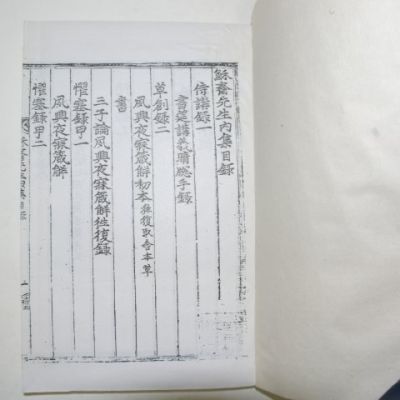 穌齋先生內集目錄
侍講錄一
書筵講義須應手錄
草創錄二
夙興夜寐箴解初本往復取舍本草
書
三子論夙興夜寐箴解往復錄
懼塞錄甲一
夙興夜寐箴解
懼塞錄甲二